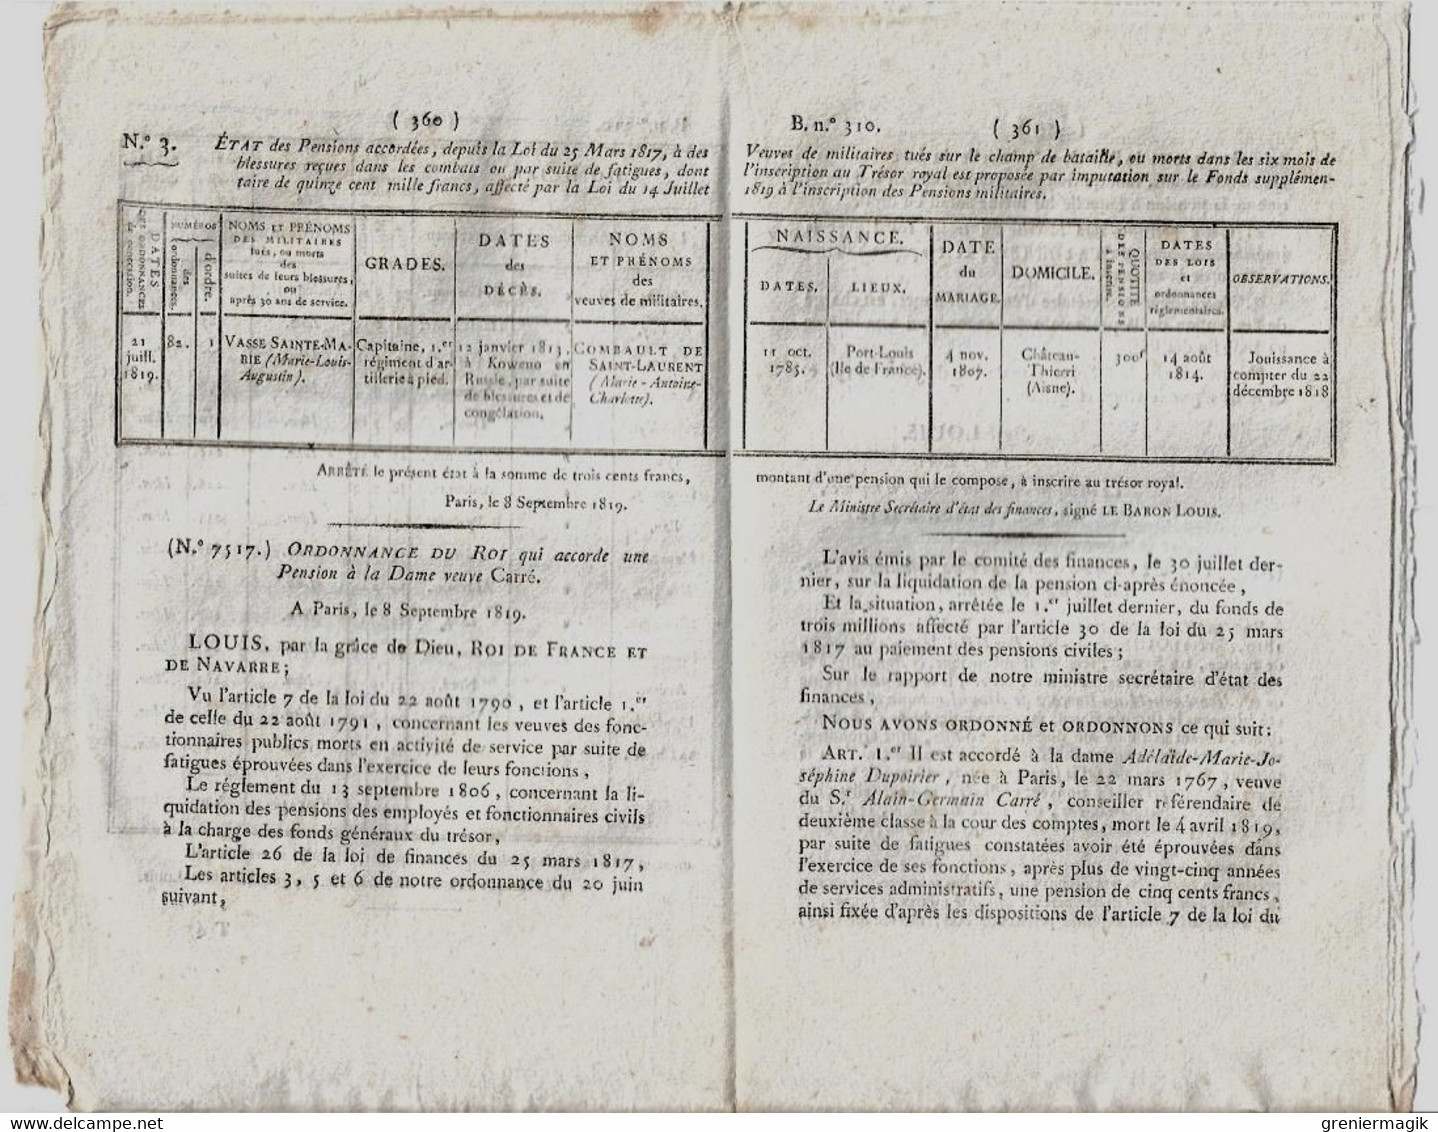 ( 360 )
N.º 3. ÉTAT des Pensions accordées, depuis la Loi du 25 Mars 1817, à des
blessures reçues dans les combats ou par suite de fatigues, dont
taire de quinze cent mille francs, affecté par la Loi du 14 Juillet
DATES DES ORDONNANCES de concession.
NUMÉROS
des ordonnances.
d'ordre.
NOMS ET PRÉNOMS
DES MILITAIRES
tués, ou morts
des
suites de leurs blessures,
ou
après 30 ans de service.
GRADES.
DATES
des
DÉCÈS.
NOMS
ET PRÉNOMS
des
veuves de militaires.
21
juill.
1819.
82.
1
VASSE SAINTE-MA-
RIE (Marie-Louis-
Augustin).
Capitaine, 1.er
régiment d'ar-
tillerie à pied.
12 janvier 1813,
à Kowno en
Russie, par suite
de blessures et de
congélation.
COMBAULT DE
SAINT-LAURENT
(Marie-Antoine-
Charlotte).
ARRÊTÉ le présent état à la somme de trois cents francs,
Paris, le 8 Septembre 1819.
(N.º 7517.) ORDONNANCE DU ROI qui accorde une
Pension à la Dame veuve Carré.
A Paris, le 8 Septembre 1819.
LOUIS, par la grâce de Dieu, ROI DE FRANCE ET
DE NAVARRE;
Vu l'article 7 de la loi du 22 août 1790, et l'article 1.er
de celle du 22 août 1791, concernant les veuves des fonc-
tionnaires publics morts en activité de service par suite de
fatigues éprouvées dans l'exercice de leurs fonctions,
Le réglement du 13 septembre 1806, concernant la li-
quidation des pensions des employés et fonctionnaires civils
à la charge des fonds généraux du trésor,
L'article 26 de la loi de finances du 25 mars 1817,
Les articles 3, 5 et 6 de notre ordonnance du 20 juin
suivant,
B. n.º 310. ( 361 )
Veuves de militaires tués sur le champ de bataille, ou morts dans les six mois de
l'inscription au Trésor royal est proposée par imputation sur le Fonds supplémen-
1819 à l'inscription des Pensions militaires.
NAISSANCE.
DATES.
LIEUX.
DATE
du
MARIAGE.
DOMICILE.
QUOTITÉ
DES PENSIONS
à inscrire.
DATES
DES LOIS
et
ordonnances
réglementaires.
OBSERVATIONS.
11 oct.
1785.
Port-Louis
(Ile de France).
4 nov.
1807.
Château-
Thierri
(Aisne).
300f
14 août
1814.
Jouissance à
compter du 22
décembre 1818
montant d'une pension qui le compose, à inscrire au trésor royal.
Le Ministre Secrétaire d'état des finances, signé LE BARON LOUIS.
L'avis émis par le comité des finances, le 30 juillet der-
nier, sur la liquidation de la pension ci-après énoncée,
Et la situation, arrêtée le 1.er juillet dernier, du fonds de
trois millions affecté par l'article 30 de la loi du 25 mars
1817 au paiement des pensions civiles;
Sur le rapport de notre ministre secrétaire d'état des
finances,
NOUS AVONS ORDONNÉ et ORDONNONS ce qui suit:
ART. 1.er Il est accordé à la dame Adélaïde-Marie-Jo-
séphine Dupoirier, née à Paris, le 22 mars 1767, veuve
du S.r Alain-Germain Carré, conseiller référendaire de
deuxième classe à la cour des comptes, mort le 4 avril 1819,
par suite de fatigues constatées avoir été éprouvées dans
l'exercice de ses fonctions, après plus de vingt-cinq années
de services administratifs, une pension de cinq cents francs,
ainsi fixée d'après les dispositions de l'article 7 de la loi du
www.delcampe.net
greniermagik